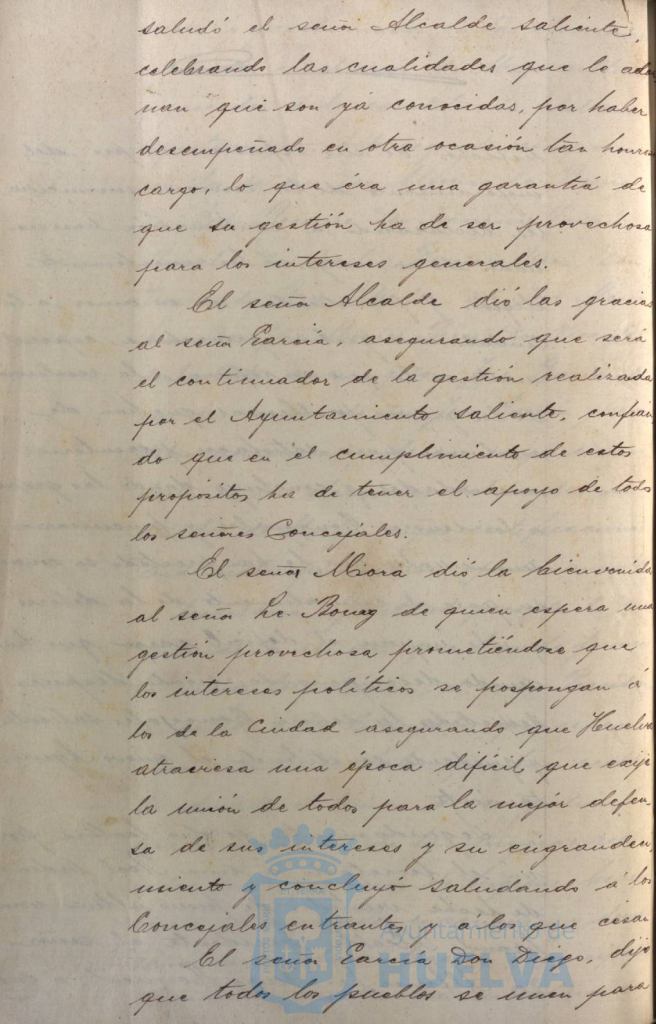 saludó el señor Alcalde saliente,
celebrando las cualidades que le ador
nan que son yá conocidas, por haber
desempeñado en otra ocasión tan honro
cargo, lo que éra una garantiá de
que su gestión ha de ser provechosa
para los intereses generales.
El señor Alcalde dió las gracias
al señor Garcia, asegurando que será
el continuador de la gestión realizada
por el Ayuntamiento saliente, confian
do que en el cumplimiento de estos
propósitos ha de tener el apoyo de todos
los señores Concejales.
El señor Mora dió la bienvenida
al señor de quien espera una
gestión provechosa prometiéndose que
los intereses políticos se pospongan á
los de la Ciudad asegurando que Huelva
atraviesa una época difícil que exije
la unión de todos para la mejor defen-
sa de sus intereses y su engrandeci
miento y concluyó saludando á los
Concejales entrantes y á los que cesan
El señor Garcia Don Diego, dijo
que todos los pueblos se unen para
Ayuntamiento de
HUELVA